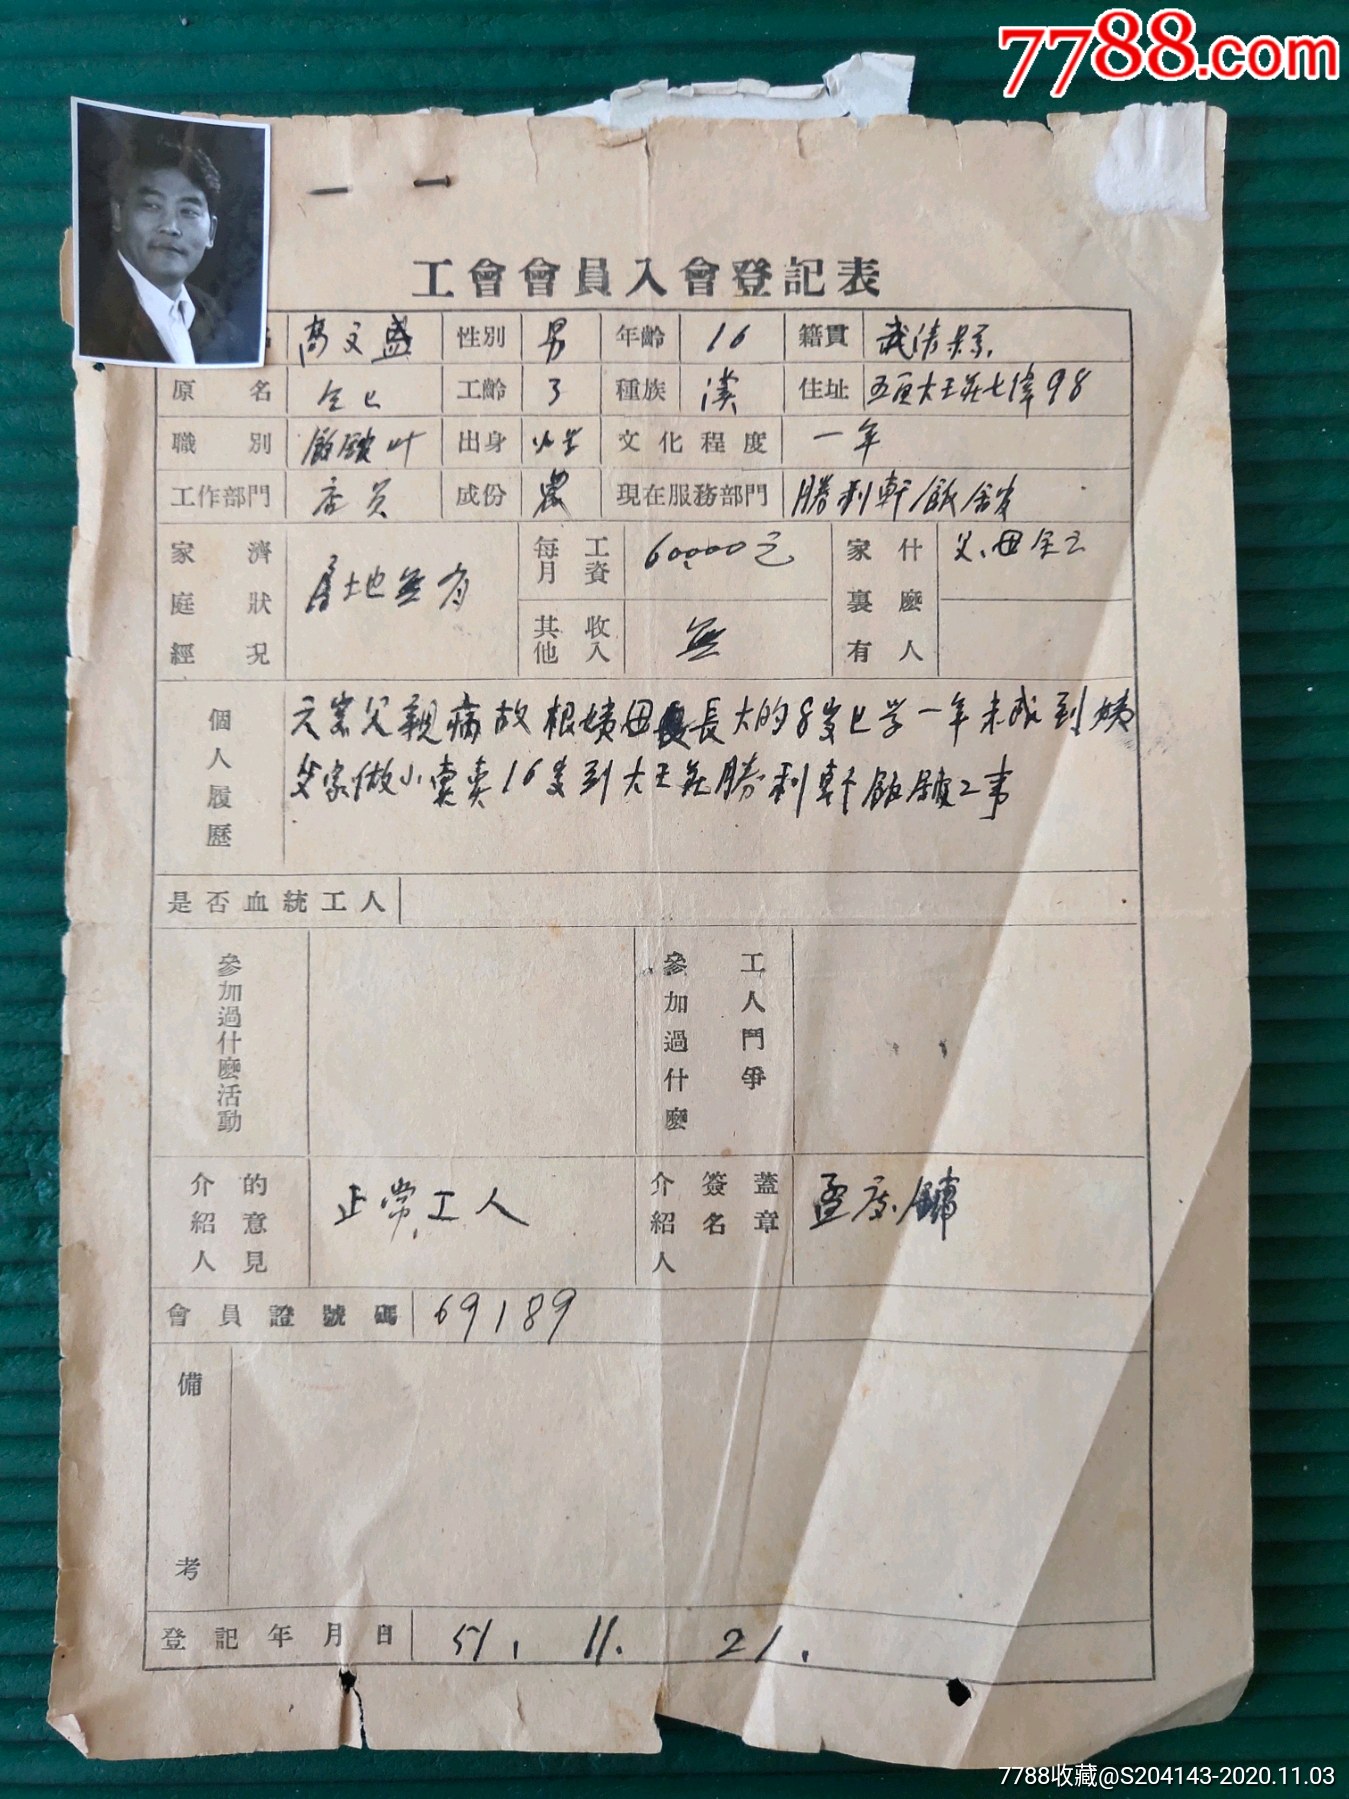 7788.com
工會會員入會登記表
高文盛 性別 男 年齡 16 籍貫 武清縣
原名 仝上 工齡 3 種族 漢 住址 五區大王庄七偉98
職別 飯舘 出身 文化程度 一年
工作部門 店員 成份 農 現在服務部門 勝利軒飯舘
家庭經濟狀況 房地無有 每月工資 60,000元 家裏有什麼人 父、母
其他收入 無
個人履歷 父親病故根姨母長大的8歲上学一年未成到姨
父家做小買卖16歲到大王庄勝利軒飯舘工事
是否血統工人
參加過什麼活動 參加過什麼工人鬥爭
介紹人的意見 正常工人 介紹人簽名蓋章 孟
會員證號碼 69189
備考
登記年月日 51. 11. 21.
7788收藏@S204143-2020.11.03